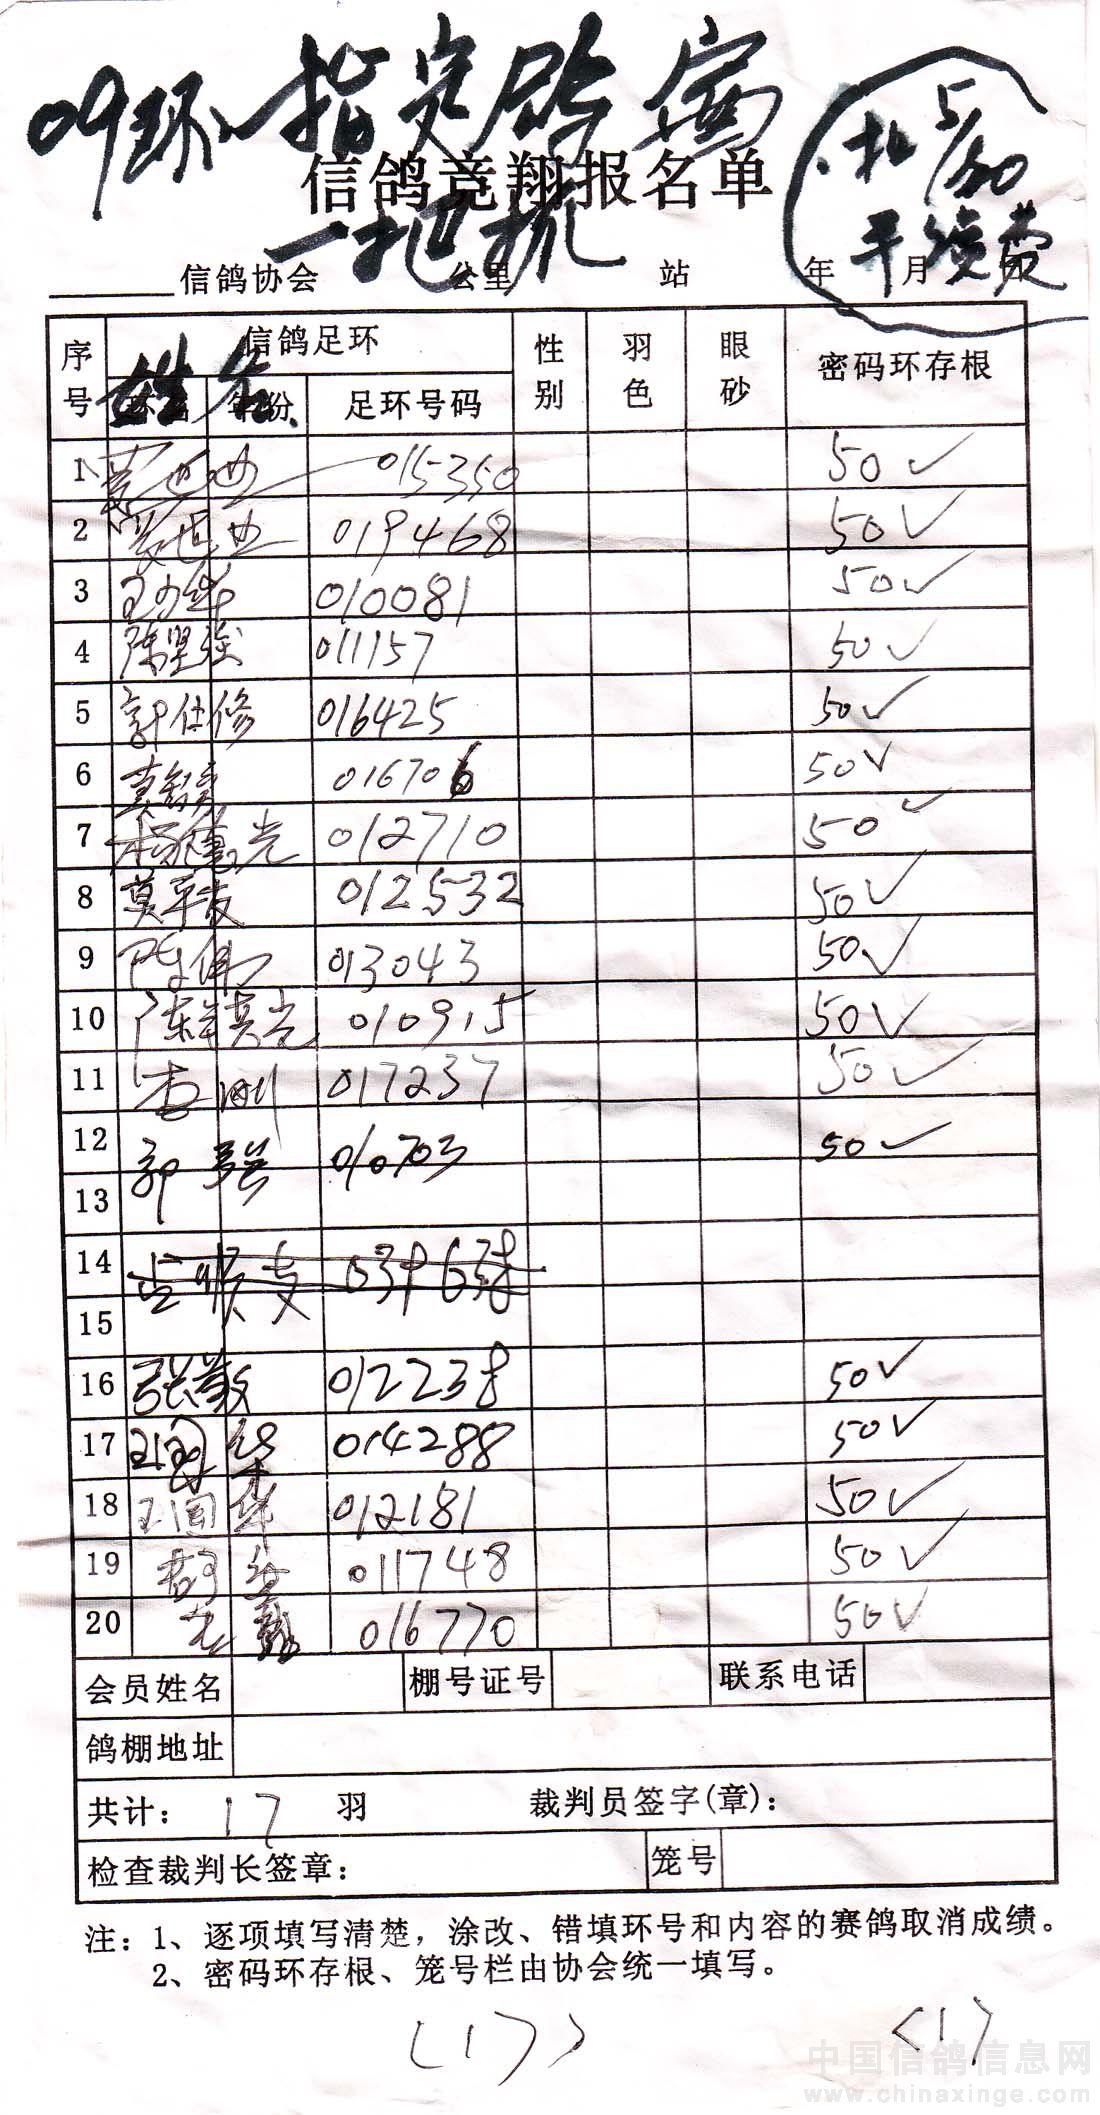 09环 指定鸽赛
扣5/100
手续费
信鸽竞翔报名单
信鸽协会 公里 站 年 月
序号 信鸽足环 性别 羽色 眼砂 密码环存根
姓名 足环号码
1 015350 50✓
2 019468 50✓
3 010081 50✓
4 陈坚强 011157 50✓
5 郭仕修 016425 50✓
6 016706 50✓
7 杨惠光 012710 50✓
8 莫平友 012532 50✓
9 陈伟 013043 50✓
10 010915 50✓
11 李刚 017237 50✓
12 郭强 010703 50✓
13
14
15
16 012238 50✓
17 王国华 014288 50✓
18 王国华 012181 50✓
19 011748 50✓
20 016770 50✓
会员姓名 棚号证号 联系电话
鸽棚地址
共计: 17 羽 裁判员签字(章):
检查裁判长签章: 笼号
注: 1、逐项填写清楚，涂改、错填环号和内容的赛鸽取消成绩。
2、密码环存根、笼号栏由协会统一填写。
(17) <1>
中国信鸽信息网
www.chinaxinge.com